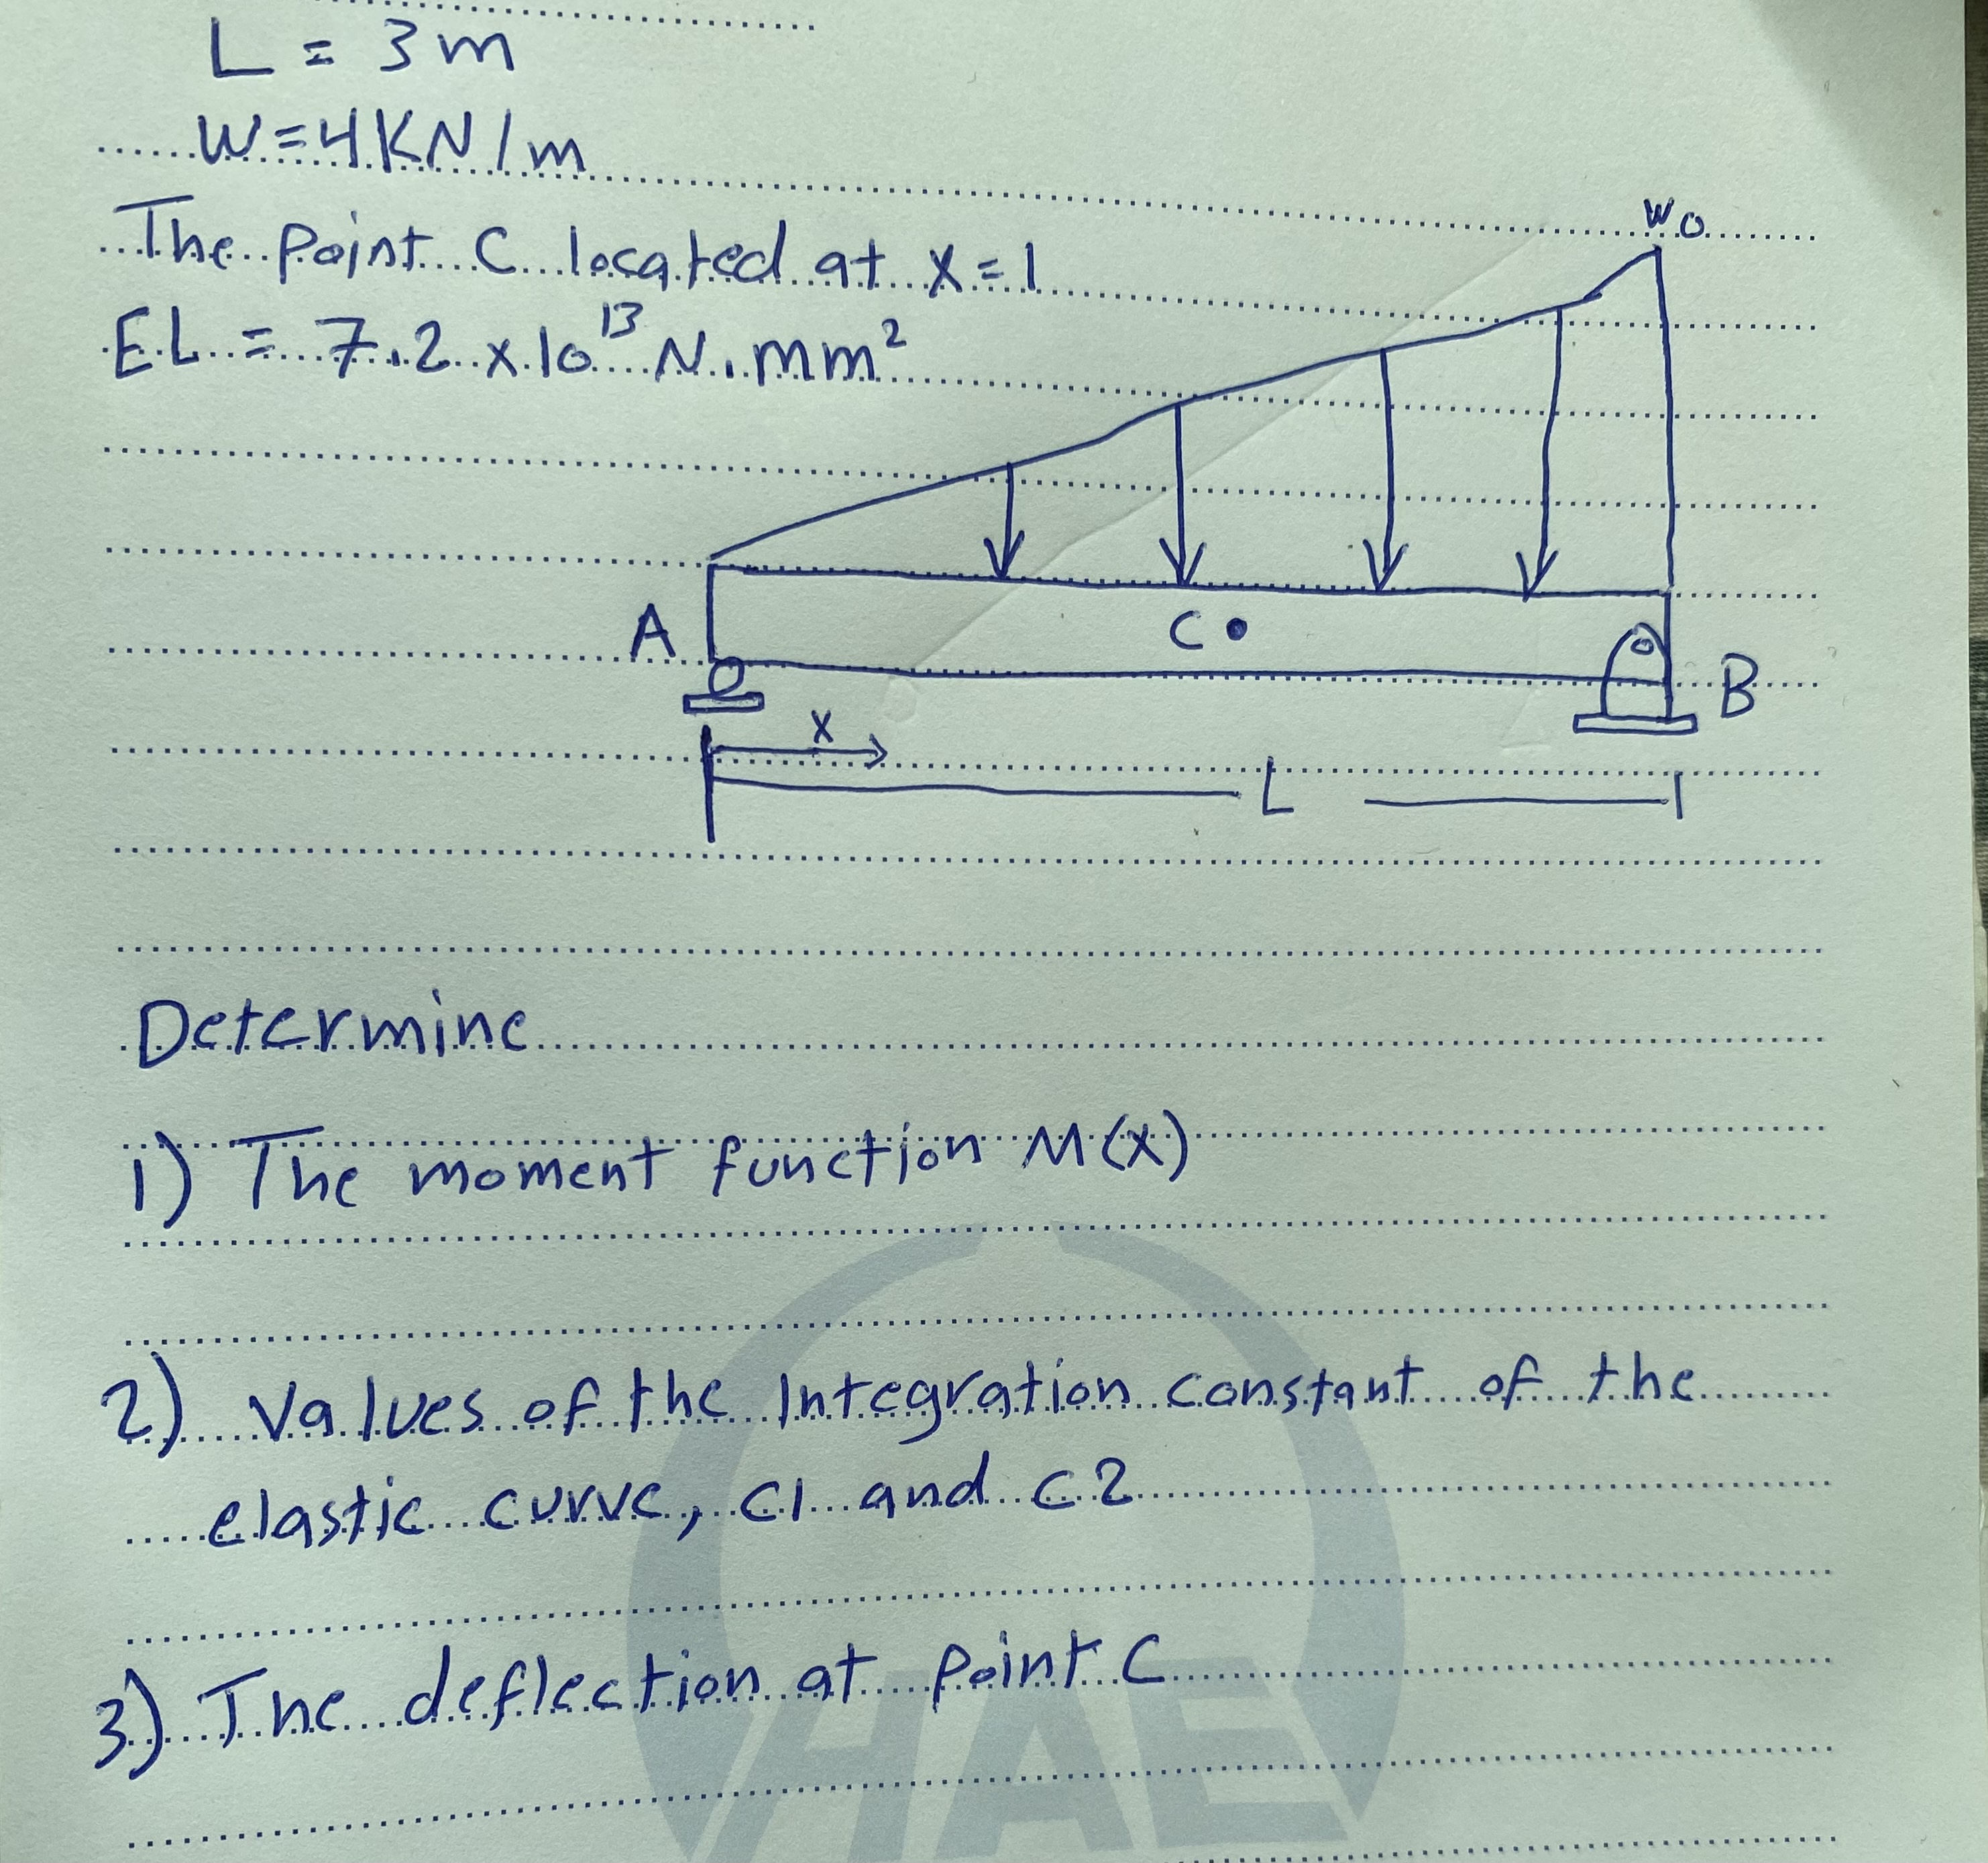 L = 3 m
W=4KN/m
The point C located at x=1
EL = 7.2 x 10¹³ N.mm²
Wo
A
C
B
x
L
Determine
1) The moment function M(x)
2) Values of the Integration constant of the
elastic curve, C1 and C2
3) The deflection at point C
HAE